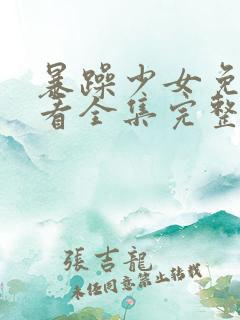 暴躁少女免
看全集完整
張吉龍
未经同意禁止转载